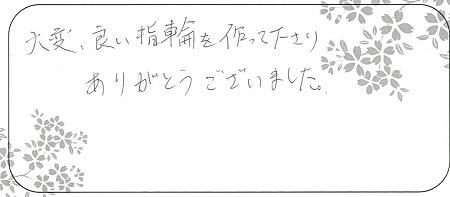 大変、良い指輪を作って下さり
ありがとうございました。